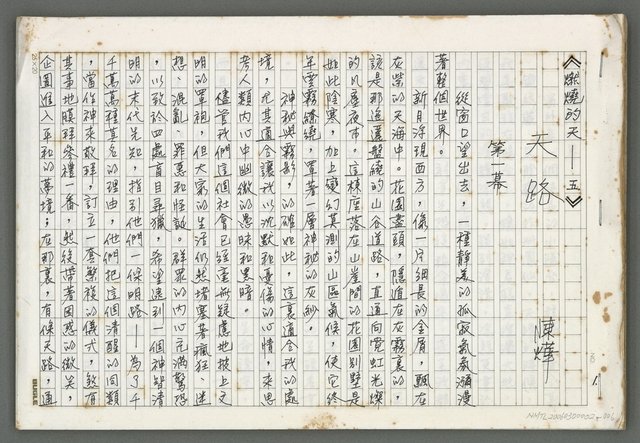 《燃燒的天——五》
天路
陳燁
第一幕
從窗口望出去，一種靜美的孤寂氣氛瀰漫
著整個世界。
新月浮現西方，像一片細長的金屑，飄在
灰藍的天海中。花園盡頭，隱遁在灰霧裏的，
該是那迤邐盤繞的山谷道路，直通向霓虹光燦
的凡塵夜市。這棟座落在山崖間的花園別墅是
如此陰寒，加上變幻莫測的山區氣候，使它終
年雲霧繚繞，罩著一層神秘的灰紗。
神秘與霧影，的確如此，這裏適合我的處
境，尤其適合讓我以沈默和憂傷的心情，來思
考人類內心中幽微的愚昧和黑暗。
儘管我們這個社會已經毫無疑慮地披上文
明的罩袍，但大家的生活仍然堵塞著瘋狂、迷
想、混亂、罪惡和怪誕。群眾的內心充滿驚恐
，以致於四處盲目尋獵，希望遇到一個神智清
明的末代先知，指引他們一條明路——為了千
千萬萬種莫名的理由，他們把這個清醒的同類
，當作神來敬拜，訂立一套繁複的儀式，煞有
其事地膜拜參禮一番，然後帶著困惑的微笑，
企圖進入平和的夢境；在那裏，有條天路，通
25×20
NMTL20060300002-006